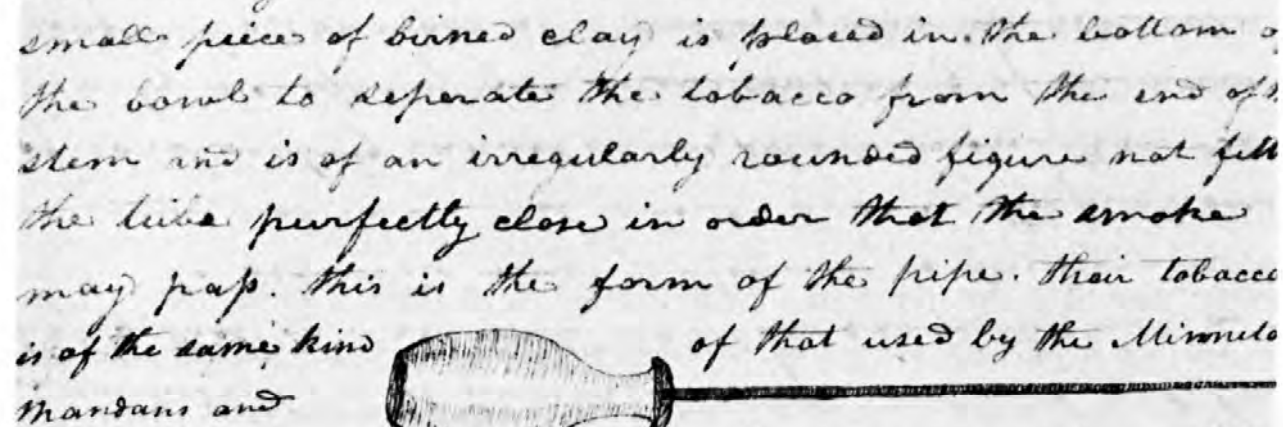 small piece of birned clay is placed in the bottom o
the bowl to seperate the tobacco from the end of
stem and is of an irregularly rounded figure not fitt
the tube purfectly close in order that the smoke
may pass. this is the form of the pipe. their tobacco
is of the same kind of that used by the Minneta
Mandans and